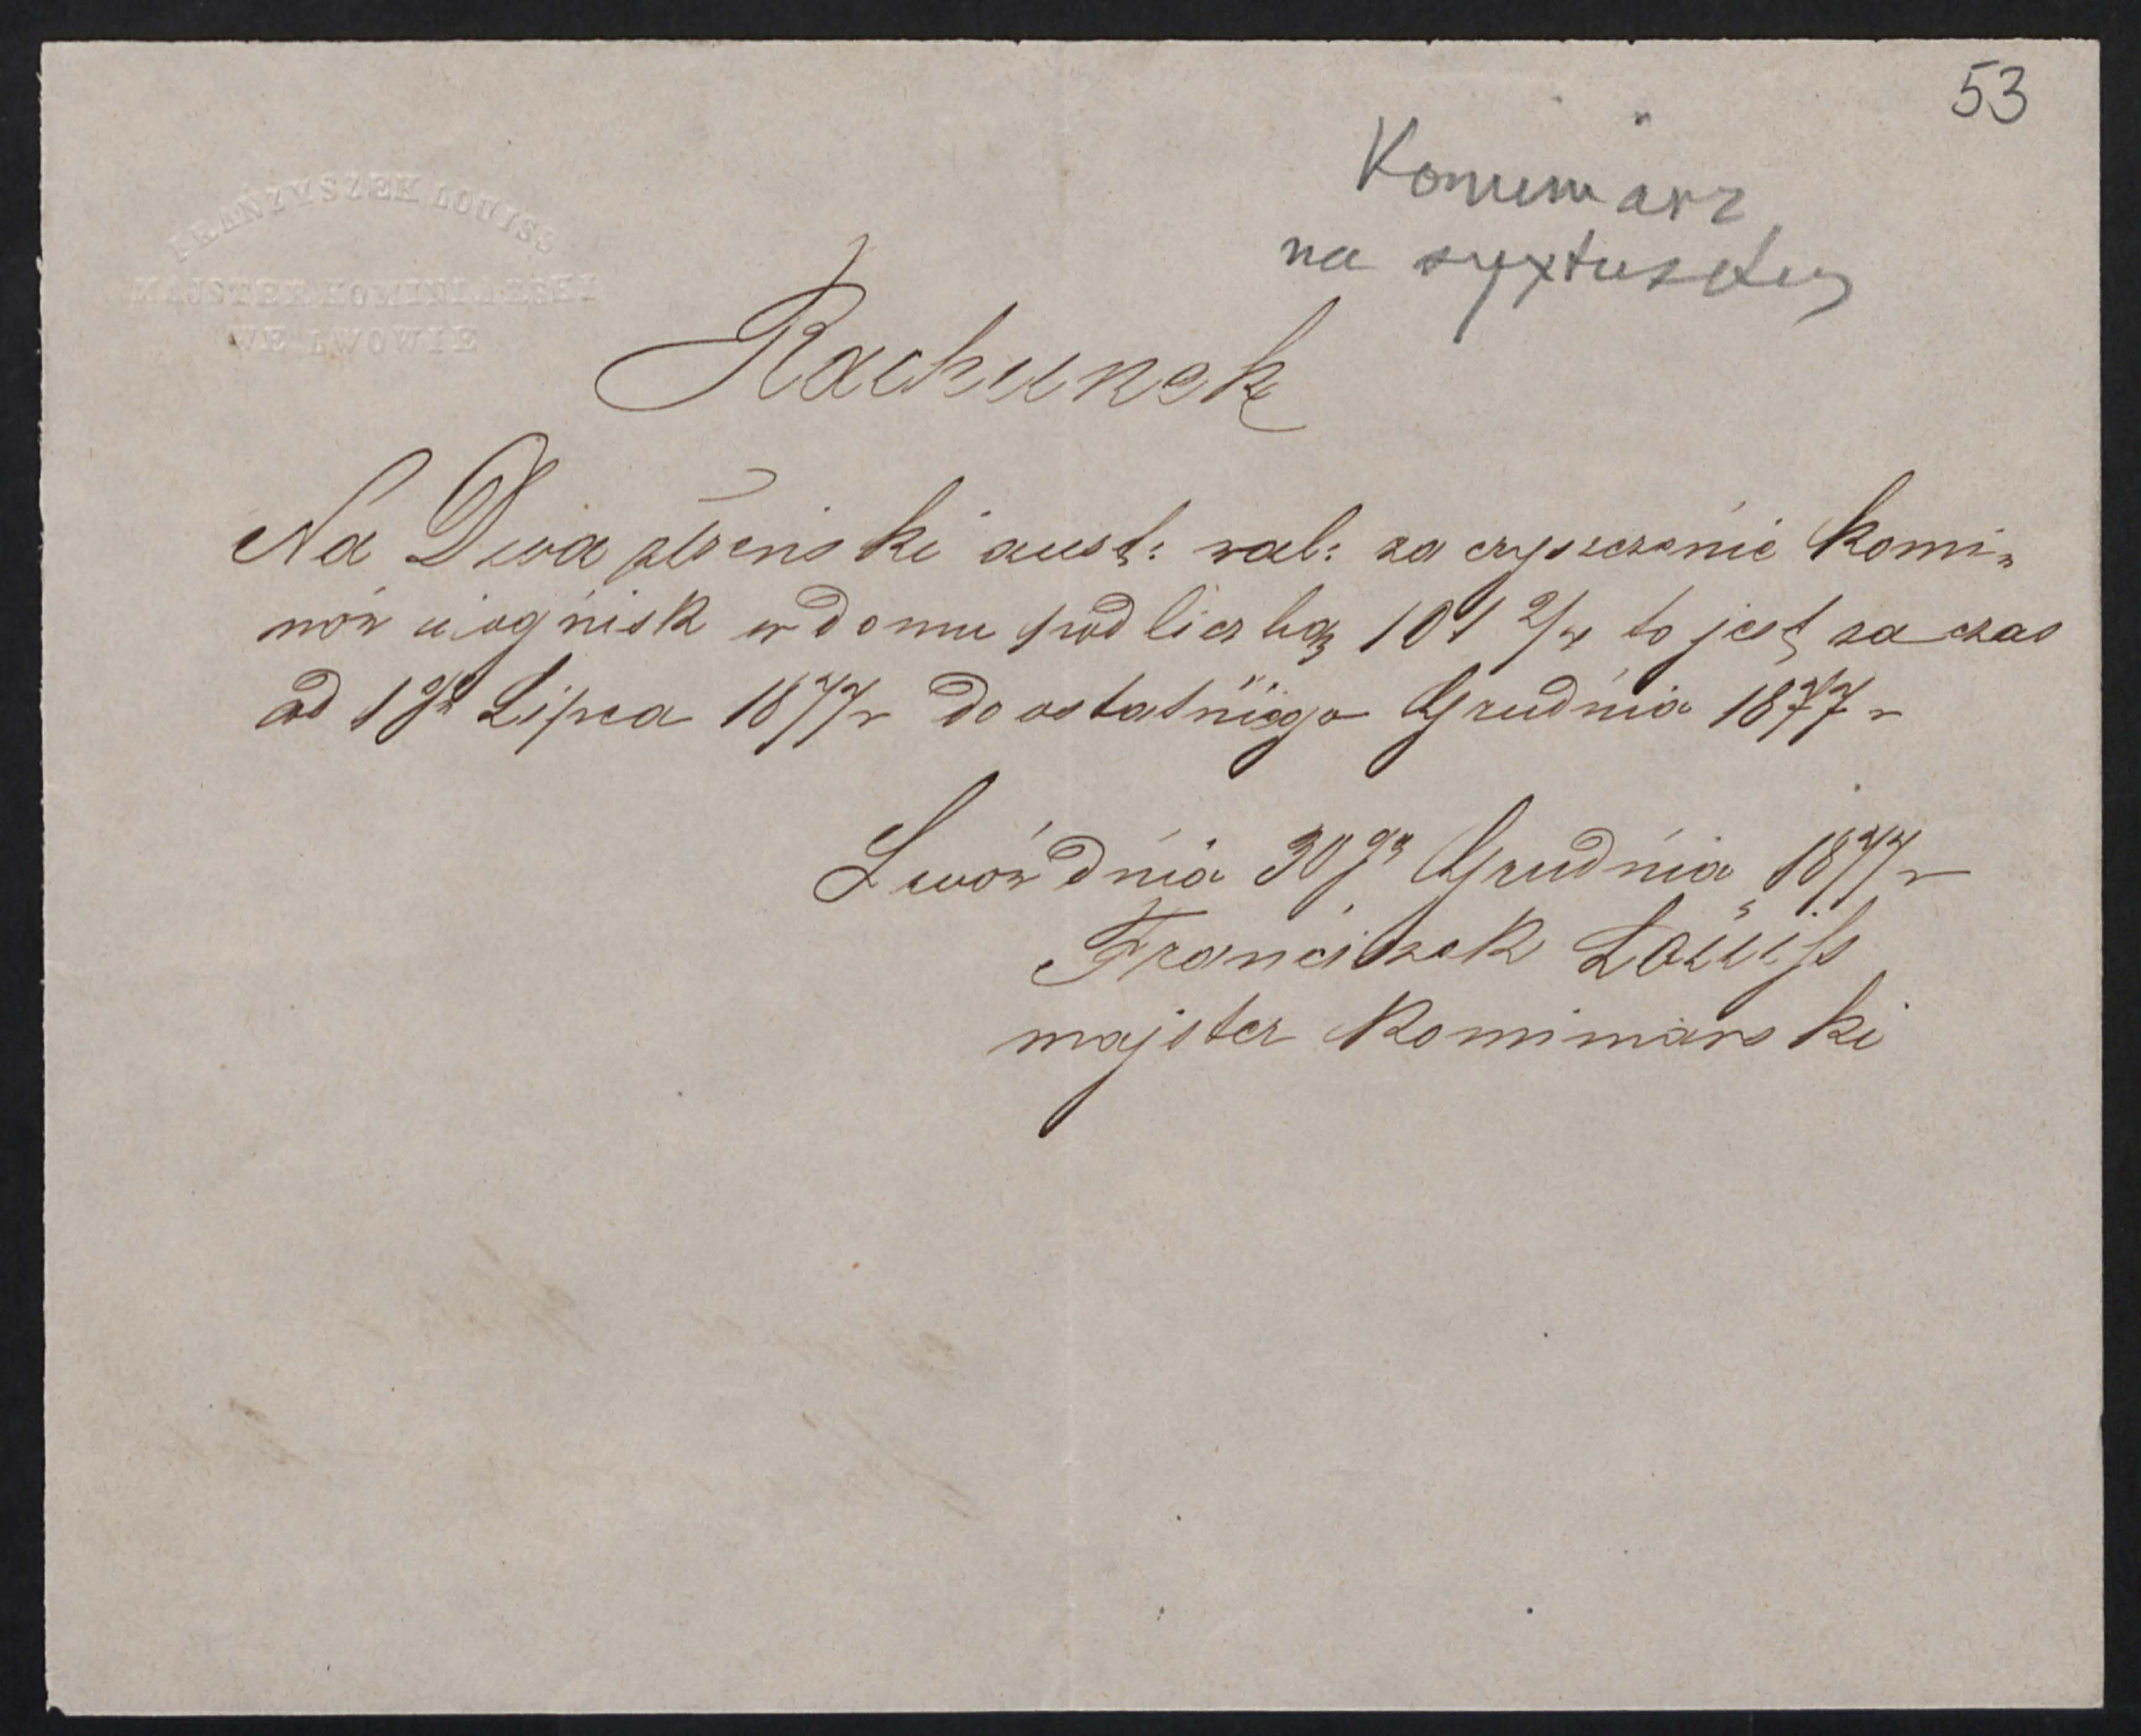 53
Kominiarz
na syxtuskiej
FRANZYSZEK LOUISS
MAJSTER KOMINIARSKI
WE LWOWIE
Rachunek
Na Dwa reński aust: wal: za czyszczenie komi=
nów i ognisk w domu pod liczbą 101 2/4 to jest za czas
od 1go Lipca 1877 r do ostatniego Grudnia 1877 r
Lwów dnia 30go Grudnia 1877 r
Franciszek Louiss
majster kominiarski